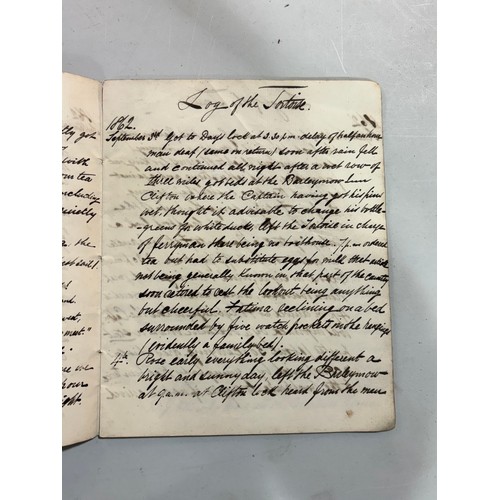 tly got
with
tea
including
quietly
the
we
hour
ight.
Log of the Tortoise.
1862.
September 3rd Got to Days lock at 3.30 p.m. delay of half an hour
man deaf (same on return) soon after rain fell
and continued all night after a wet row of
three miles got beds at the Barleymow Inn
Clifton where the Captain having got his pins
wet thought it advisable to change his bottle-
greens for white ducks, left the Tortoise in charge
of ferryman there being no boathouse. 7 p.m. ordered
tea but had to substitute eggs for milk that article
not being generally known in that part of the country
soon retired to rest the lookout being anything
but cheerful. Fatima reclining on a bed
surrounded by five watch pockets on the hangings
(evidently a family bed).
4th Rose early everything looking different a
bright and sunny day, left the Barleymow
at 9 a.m. at Clifton lock heard from the man